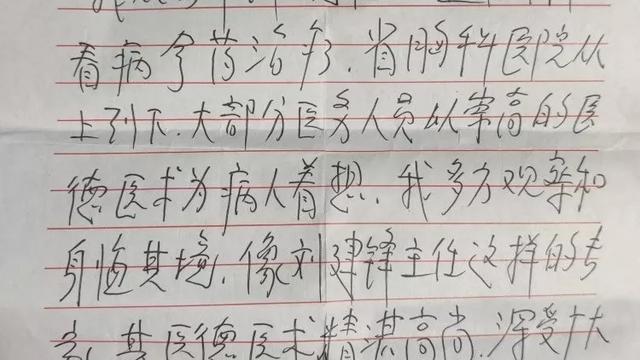 看病令药治疗.省胸科医院从
上到下.大部分医务人员从崇高的医
德医术为病人着想.我多方观察和
身临其境.像刘建锋主任这样的专
家.其医德医术精湛高尚.深受广大